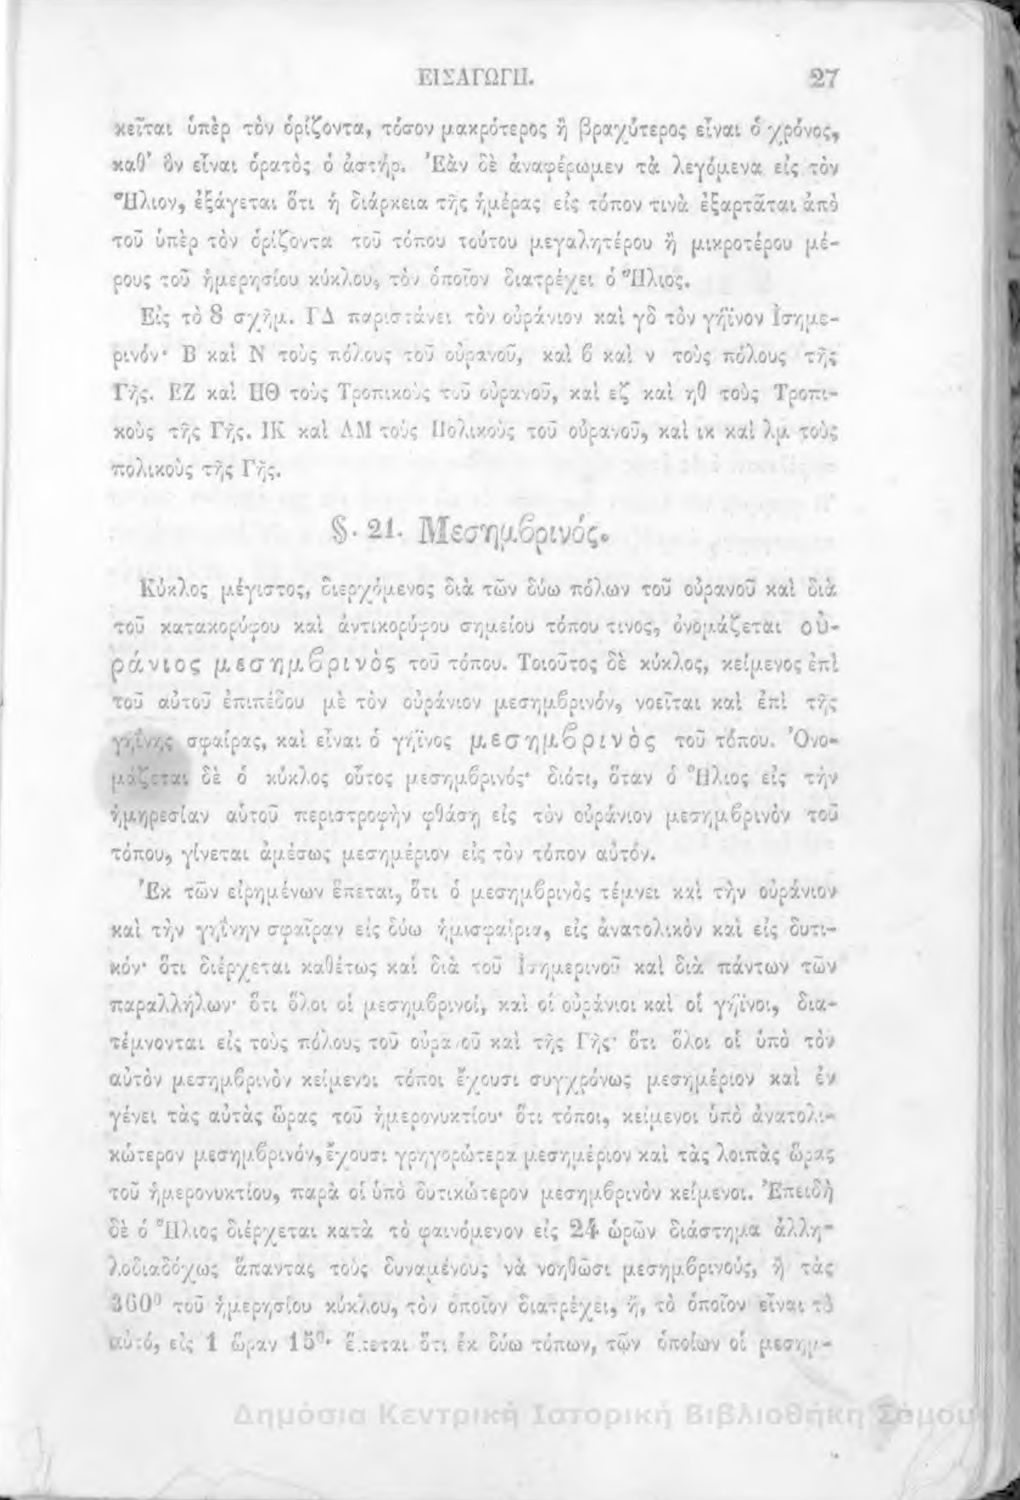 ΕΙΣΑΓΩΓΗ. 27
κεῖται ὑπὲρ τὸν ὁρίζοντα, τόσον μακρότερος ἢ βραχύτερος εἶναι ὁ χρόνος,
καθ’ ὃν εἶναι ὁρατὸς ὁ ἀστήρ. Ἐὰν δὲ ἀναφέρωμεν τὰ λεγόμενα εἰς τὸν
Ἥλιον, ἐξάγεται ὅτι ἡ διάρκεια τῆς ἡμέρας εἰς τόπον τινὰ ἐξαρτᾶται ἀπὸ
τοῦ ὑπὲρ τὸν ὁρίζοντα τοῦ τόπου τούτου μεγαλητέρου ἢ μικροτέρου μέ-
ρους τοῦ ἡμερησίου κύκλου, τὸν ὁποῖον διατρέχει ὁ Ἥλιος.
Εἰς τὸ 8 σχῆμ. ΓΔ παριστάνει τὸν οὐράνιον καὶ γδ τὸν γήϊνον Ἰσημε-
ρινόν· Β καὶ Ν τοὺς πόλους τοῦ οὐρανοῦ, καὶ ϐ καὶ ν τοὺς πόλους τῆς
Γῆς. ΕΖ καὶ ΗΘ τοὺς Τροπικοὺς τοῦ οὐρανοῦ, καὶ εζ καὶ ηθ τοὺς Τροπι-
κοὺς τῆς Γῆς. ΙΚ καὶ ΛΜ τοὺς Πολικοὺς τοῦ οὐρανοῦ, καὶ ικ καὶ λμ τοὺς
πολικοὺς τῆς Γῆς.
§. 21. Μεσημϐρινός.
Κύκλος μέγιστος, διερχόμενος διὰ τῶν δύω πόλων τοῦ οὐρανοῦ καὶ διὰ
τοῦ κατακορύφου καὶ ἀντικορύφου σημείου τόπου τινος, ὀνομάζεται οὐ-
ράνιος μεσημϐρινὸς τοῦ τόπου. Τοιοῦτος δὲ κύκλος, κείμενος ἐπὶ
τοῦ αὐτοῦ ἐπιπέδου μὲ τὸν οὐράνιον μεσημϐρινόν, νοεῖται καὶ ἐπὶ τῆς
γηΐνης σφαίρας, καὶ εἶναι ὁ γήϊνος μεσημϐρινὸς τοῦ τόπου. Ὀνο-
μάζεται δὲ ὁ κύκλος οὗτος μεσημϐρινός· διότι, ὅταν ὁ Ἥλιος εἰς τὴν
ἡμηρεσίαν αὑτοῦ περιστροφὴν φθάσῃ εἰς τὸν οὐράνιον μεσημϐρινὸν τοῦ
τόπου, γίνεται ἀμέσως μεσημέριον εἰς τὸν τόπον αὐτόν.
Ἐκ τῶν εἰρημένων ἕπεται, ὅτι ὁ μεσημϐρινὸς τέμνει καὶ τὴν οὐράνιον
καὶ τὴν γηΐνην σφαῖραν εἰς δύω ἡμισφαίρια, εἰς ἀνατολικὸν καὶ εἰς δυτι-
κόν· ὅτι διέρχεται καθέτως καὶ διὰ τοῦ Ἰσημερινοῦ καὶ διὰ πάντων τῶν
παραλλήλων· ὅτι ὅλοι οἱ μεσημϐρινοί, καὶ οἱ οὐράνιοι καὶ οἱ γήϊνοι, δια-
τέμνονται εἰς τοὺς πόλους τοῦ οὐρανοῦ καὶ τῆς Γῆς· ὅτι ὅλοι οἱ ὑπὸ τὸν
αὐτὸν μεσημϐρινὸν κείμενοι τόποι ἔχουσι συγχρόνως μεσημέριον καὶ ἐν
γένει τὰς αὐτὰς ὥρας τοῦ ἡμερονυκτίου· ὅτι τόποι, κείμενοι ὑπὸ ἀνατολι-
κώτερον μεσημϐρινόν, ἔχουσι γρηγορώτερα μεσημέριον καὶ τὰς λοιπὰς ὥρας
τοῦ ἡμερονυκτίου, παρὰ οἱ ὑπὸ δυτικώτερον μεσημϐρινὸν κείμενοι. Ἐπειδὴ
δὲ ὁ Ἥλιος διέρχεται κατὰ τὸ φαινόμενον εἰς 24 ὡρῶν διάστημα ἀλλη-
λοδιαδόχως ἅπαντας τοὺς δυναμένους νὰ νοηθῶσι μεσημϐρινούς, ἢ τὰς
360⁰ τοῦ ἡμερησίου κύκλου, τὸν ὁποῖον διατρέχει, ἤ, τὸ ὁποῖον εἶναι τὸ
αὐτό, εἰς 1 ὥραν 15⁰· ἕπεται ὅτι ἐκ δύω τόπων, τῶν ὁποίων οἱ μεσημ-
Δημόσια Κεντρική Ιστορική Βιβλιοθήκη Σάμου